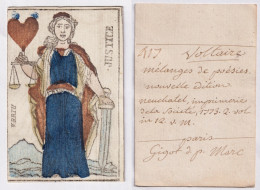 JUSTICE
R17 Voltaire
mélanges de poésies
nouvelle édition
neuchatel, imprimerie
de la 1773. 2 vol
in 12. M.
paris
Gigot d p. Marc